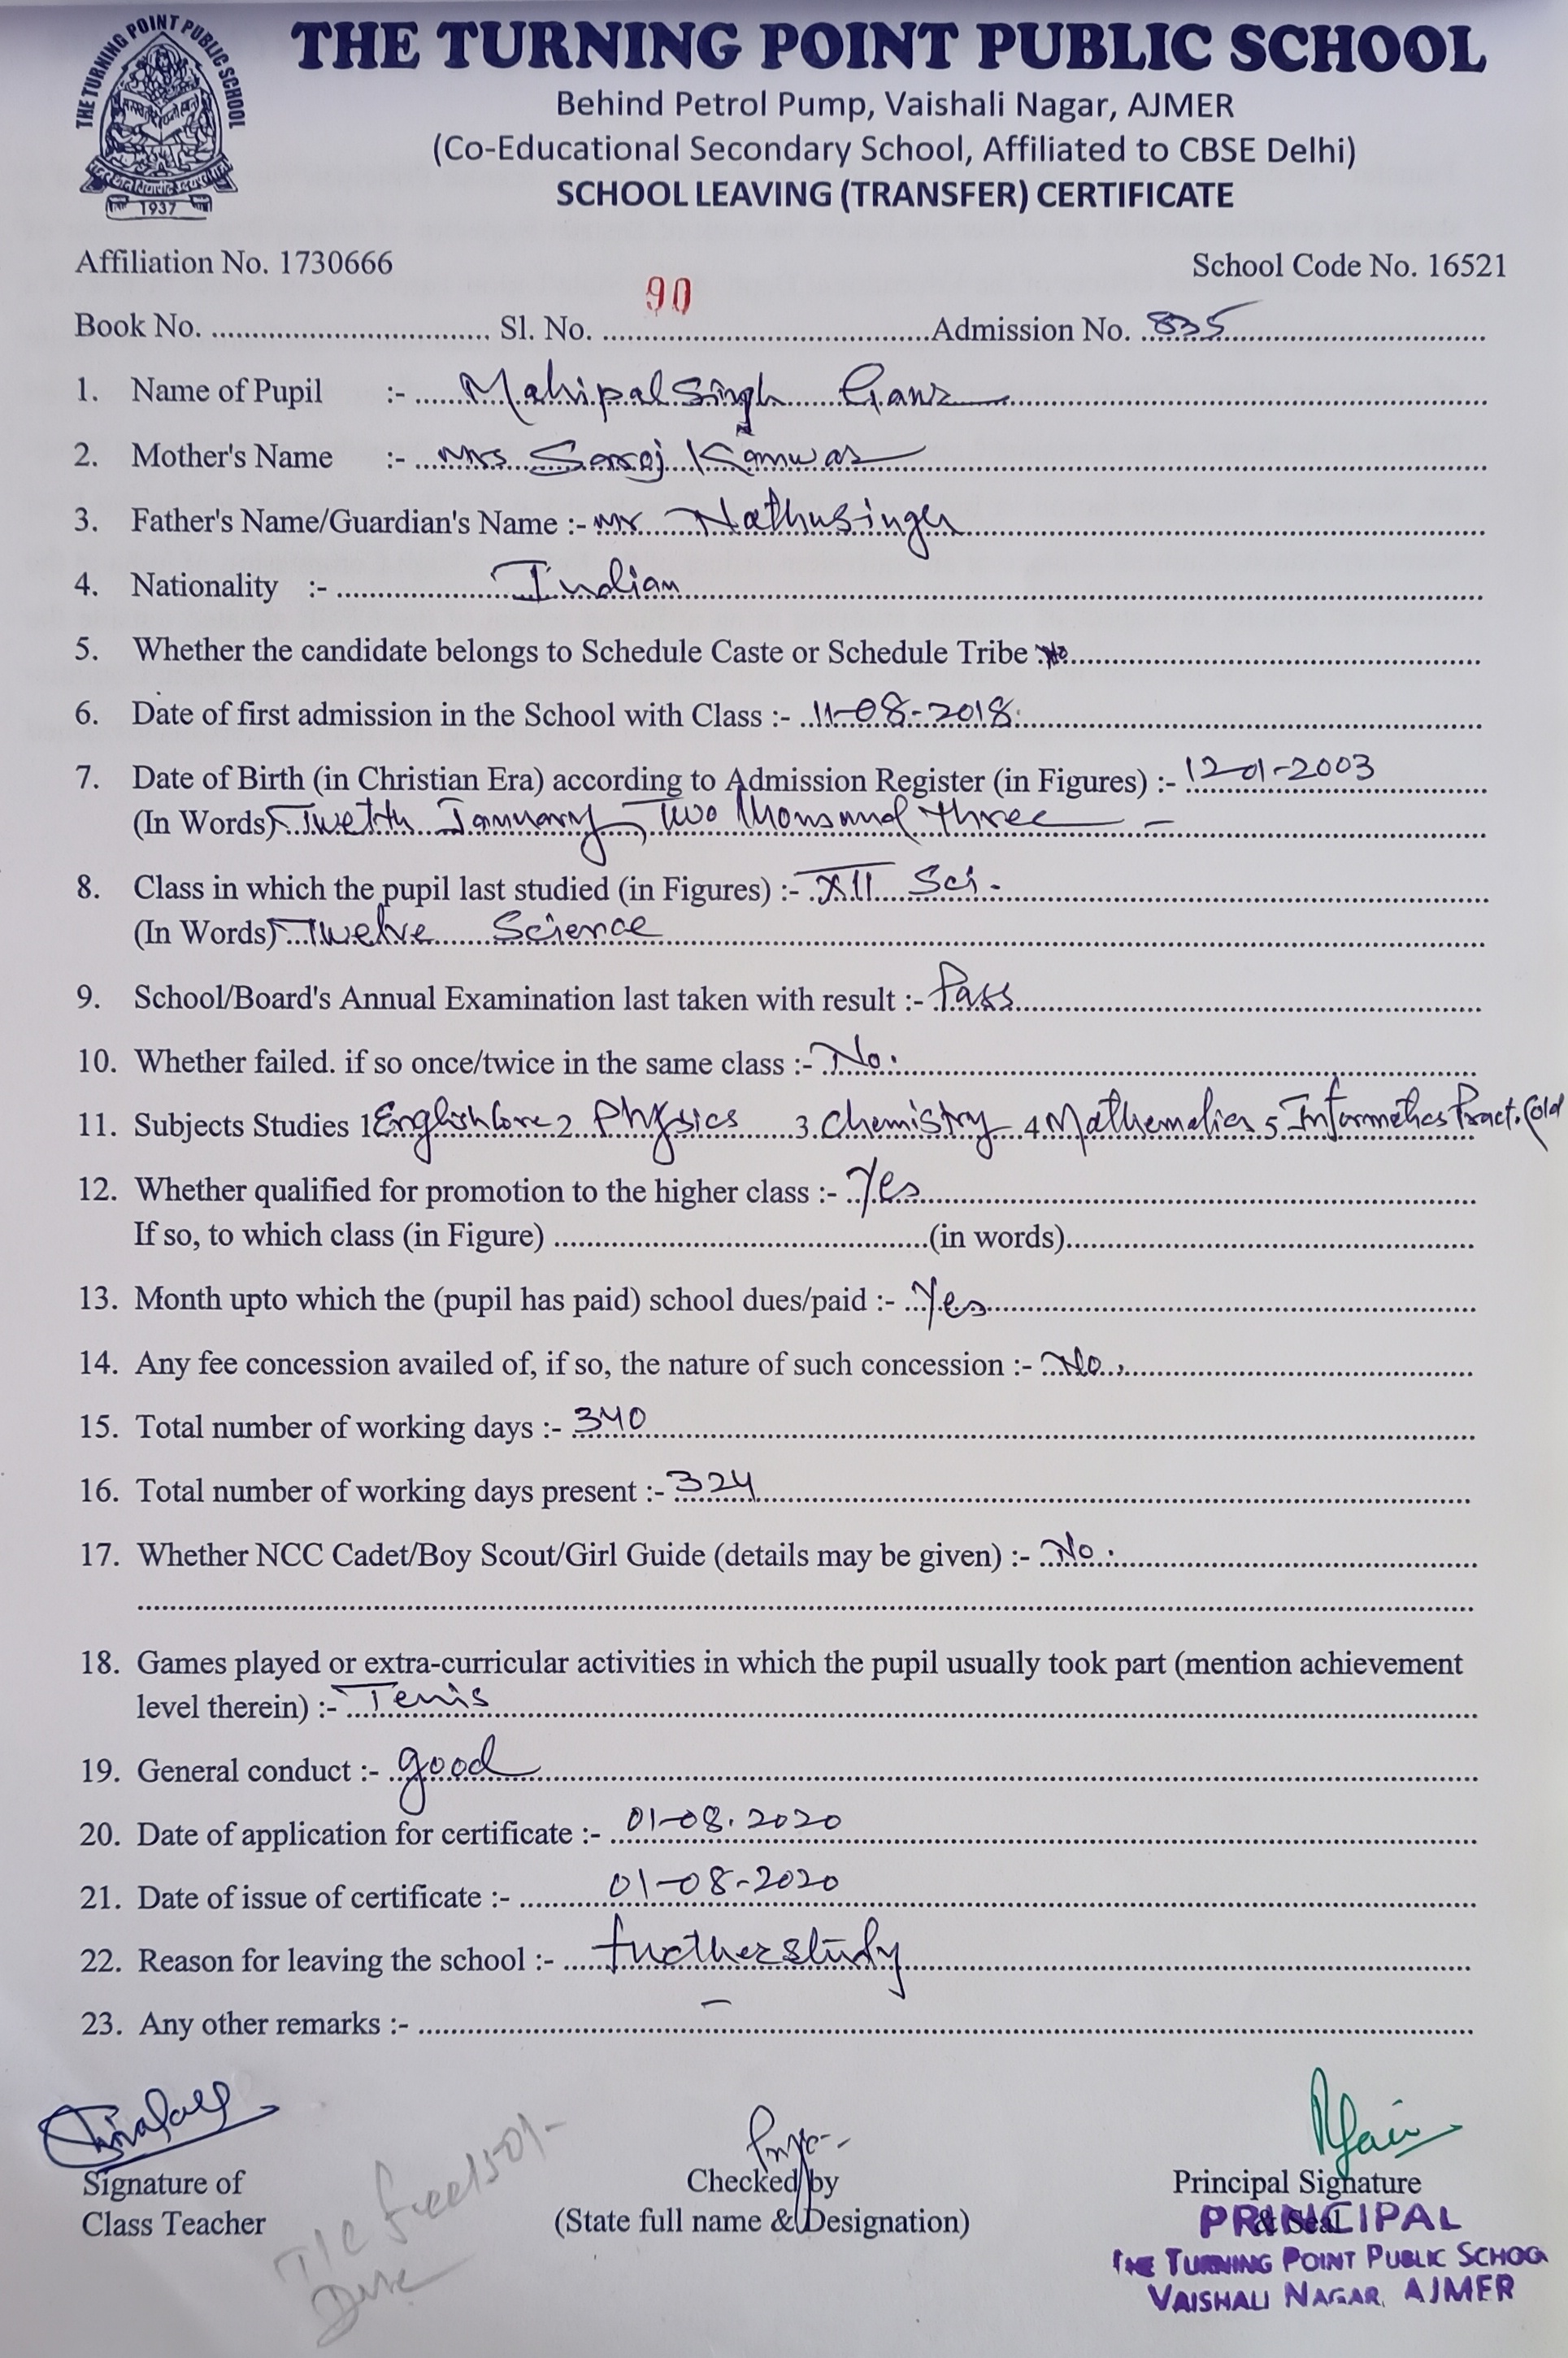 THE TURNING POINT PUBLIC SCHOOL
1937
THE TURNING POINT PUBLIC SCHOOL
Behind Petrol Pump, Vaishali Nagar, AJMER
(Co-Educational Secondary School, Affiliated to CBSE Delhi)
SCHOOL LEAVING (TRANSFER) CERTIFICATE
Affiliation No. 1730666 School Code No. 16521
Book No. .............................. Sl. No. 90 Admission No. 835
1. Name of Pupil :- Mahipal Singh Gaur
2. Mother's Name :- Mrs Saroj Kanwar
3. Father's Name/Guardian's Name :- Mr Nathusingh
4. Nationality :- Indian
5. Whether the candidate belongs to Schedule Caste or Schedule Tribe :- No
6. Date of first admission in the School with Class :- 11-08-2018
7. Date of Birth (in Christian Era) according to Admission Register (in Figures) :- 12-01-2003
(In Words) Twelth January, Two thousand three -
8. Class in which the pupil last studied (in Figures) :- XII Sci.
(In Words) Twelve Science
9. School/Board's Annual Examination last taken with result :- Pass
10. Whether failed. if so once/twice in the same class :- No.
11. Subjects Studies 1 English Core 2 Physics 3. Chemistry 4 Mathematics 5 Informatics Pract. (Old
12. Whether qualified for promotion to the higher class :- Yes
If so, to which class (in Figure) ..............................(in words)..............................
13. Month upto which the (pupil has paid) school dues/paid :- Yes
14. Any fee concession availed of, if so, the nature of such concession :- No.
15. Total number of working days :- 340
16. Total number of working days present :- 324
17. Whether NCC Cadet/Boy Scout/Girl Guide (details may be given) :- No.
18. Games played or extra-curricular activities in which the pupil usually took part (mention achievement
level therein) :- Tenis
19. General conduct :- good
20. Date of application for certificate :- 01-08.2020
21. Date of issue of certificate :- 01-08-2020
22. Reason for leaving the school :- further study
23. Any other remarks :- -
Signature of Checked by Principal Signature
Class Teacher (State full name & Designation) & Seal
PRINCIPAL
THE TURNING POINT PUBLIC SCHOO
VAISHALI NAGAR, AJMER